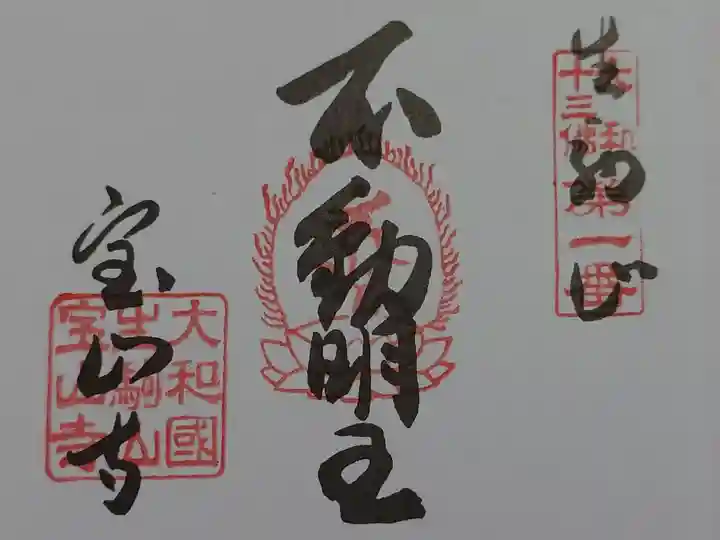 生駒山
大和十三佛第一番
不動明王
宝山寺
大和國
生駒山
宝山寺